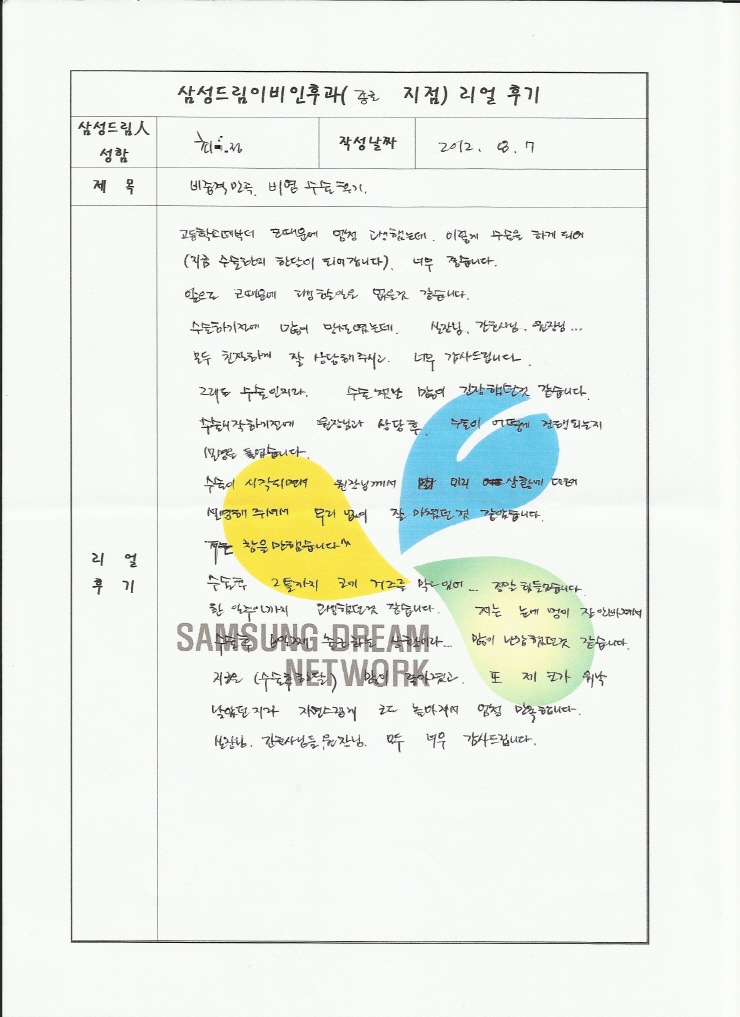 삼성드림이비인후과( 종로 지점) 리얼 후기
삼성드림人
성함
작성날짜
2012. 8. 7
제 목
비중격만곡, 비염 수술후기.
고등학교때부터 코때문에 엄청 고생했는데. 이렇게 수술을 하게 되어
(지금 수술한지 한달이 되어갑니다). 너무 좋습니다.
앞으로 코때문에 걱정할일은 없을것 같습니다.
수술하기전에 많이 망설였는데. 실장님, 간호사님, 원장님...
모두 친절하게 잘 상담해주시고. 너무 감사드립니다.
그래도 수술인지라. 수술전날 많이 긴장했던것 같습니다.
수술시작하기전에 원장님과 상담후, 수술이 어떻게 진행되는지
설명을 들었습니다.
수술이 시작되면서 원장님께서 미리 상황에 대해
설명해 주셔서 무리 없이 잘 마쳤던것 같습니다.
저는 잠을 안했습니다^^
수술후 2틀까지 코에 거즈를 막고있어... 정말 힘들었습니다.
한 일주일까지 고생했던것 같습니다. 저는 눈에 멍이 잘 안빠져서
수술후 상황이라... 많이 난감했던것 같습니다.
지금은 (수술후한달) 많이 좋아졌고. 또 제 코가 워낙
낮았던지라 자연스럽게 코도 높아져서 엄청 만족합니다.
실장님. 간호사님들, 원장님. 모두 너무 감사드립니다.
리 얼
후 기
SAMSUNG DREAM
NETWORK